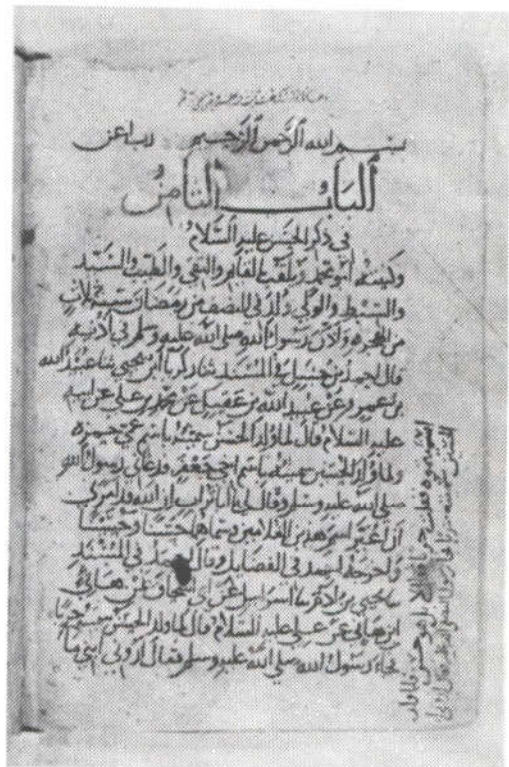 بسم الله الرحمن الرحيم رب اعن
الباب الثامن
في ذكر الحسن عليه السلام
وكنيته ابو محمد ويلقب بالقايم والتقي والطيب والسيد
والسبط والولي ولد في النصف من رمضان سنة ثلاث
من الهجرة واذن رسول الله صلى الله عليه وسلم في اذنيه
قال احمد بن حنبل في المسند ثنا زكريا ابن يحيى ثنا عبد الله
بن عمير وعن عبيد الله بن عقيل عن محمد بن علي عن ابيه
عليه السلام قال لما ولد الحسن سميته باسم عمي حمزة
ولما ولد الحسين سميته باسم اخي جعفر فدعاني رسول الله
صلى الله عليه وسلم وقال لي يا ابا تراب ان الله قد امرني
ان اغير اسم هذين الغلامين وسماهما حسنا وحسينا
واخرجه احمد في الفضايل وقال احمد في المسند
ثنا يحيى بن ادم ثنا اسرايل عن ابي اسحاق عن هاني
ابن هاني عن علي عليه السلام قال لما ولد الحسن سميته حربا
فجاء رسول الله صلى الله عليه وسلم فقال اروني ابني ما